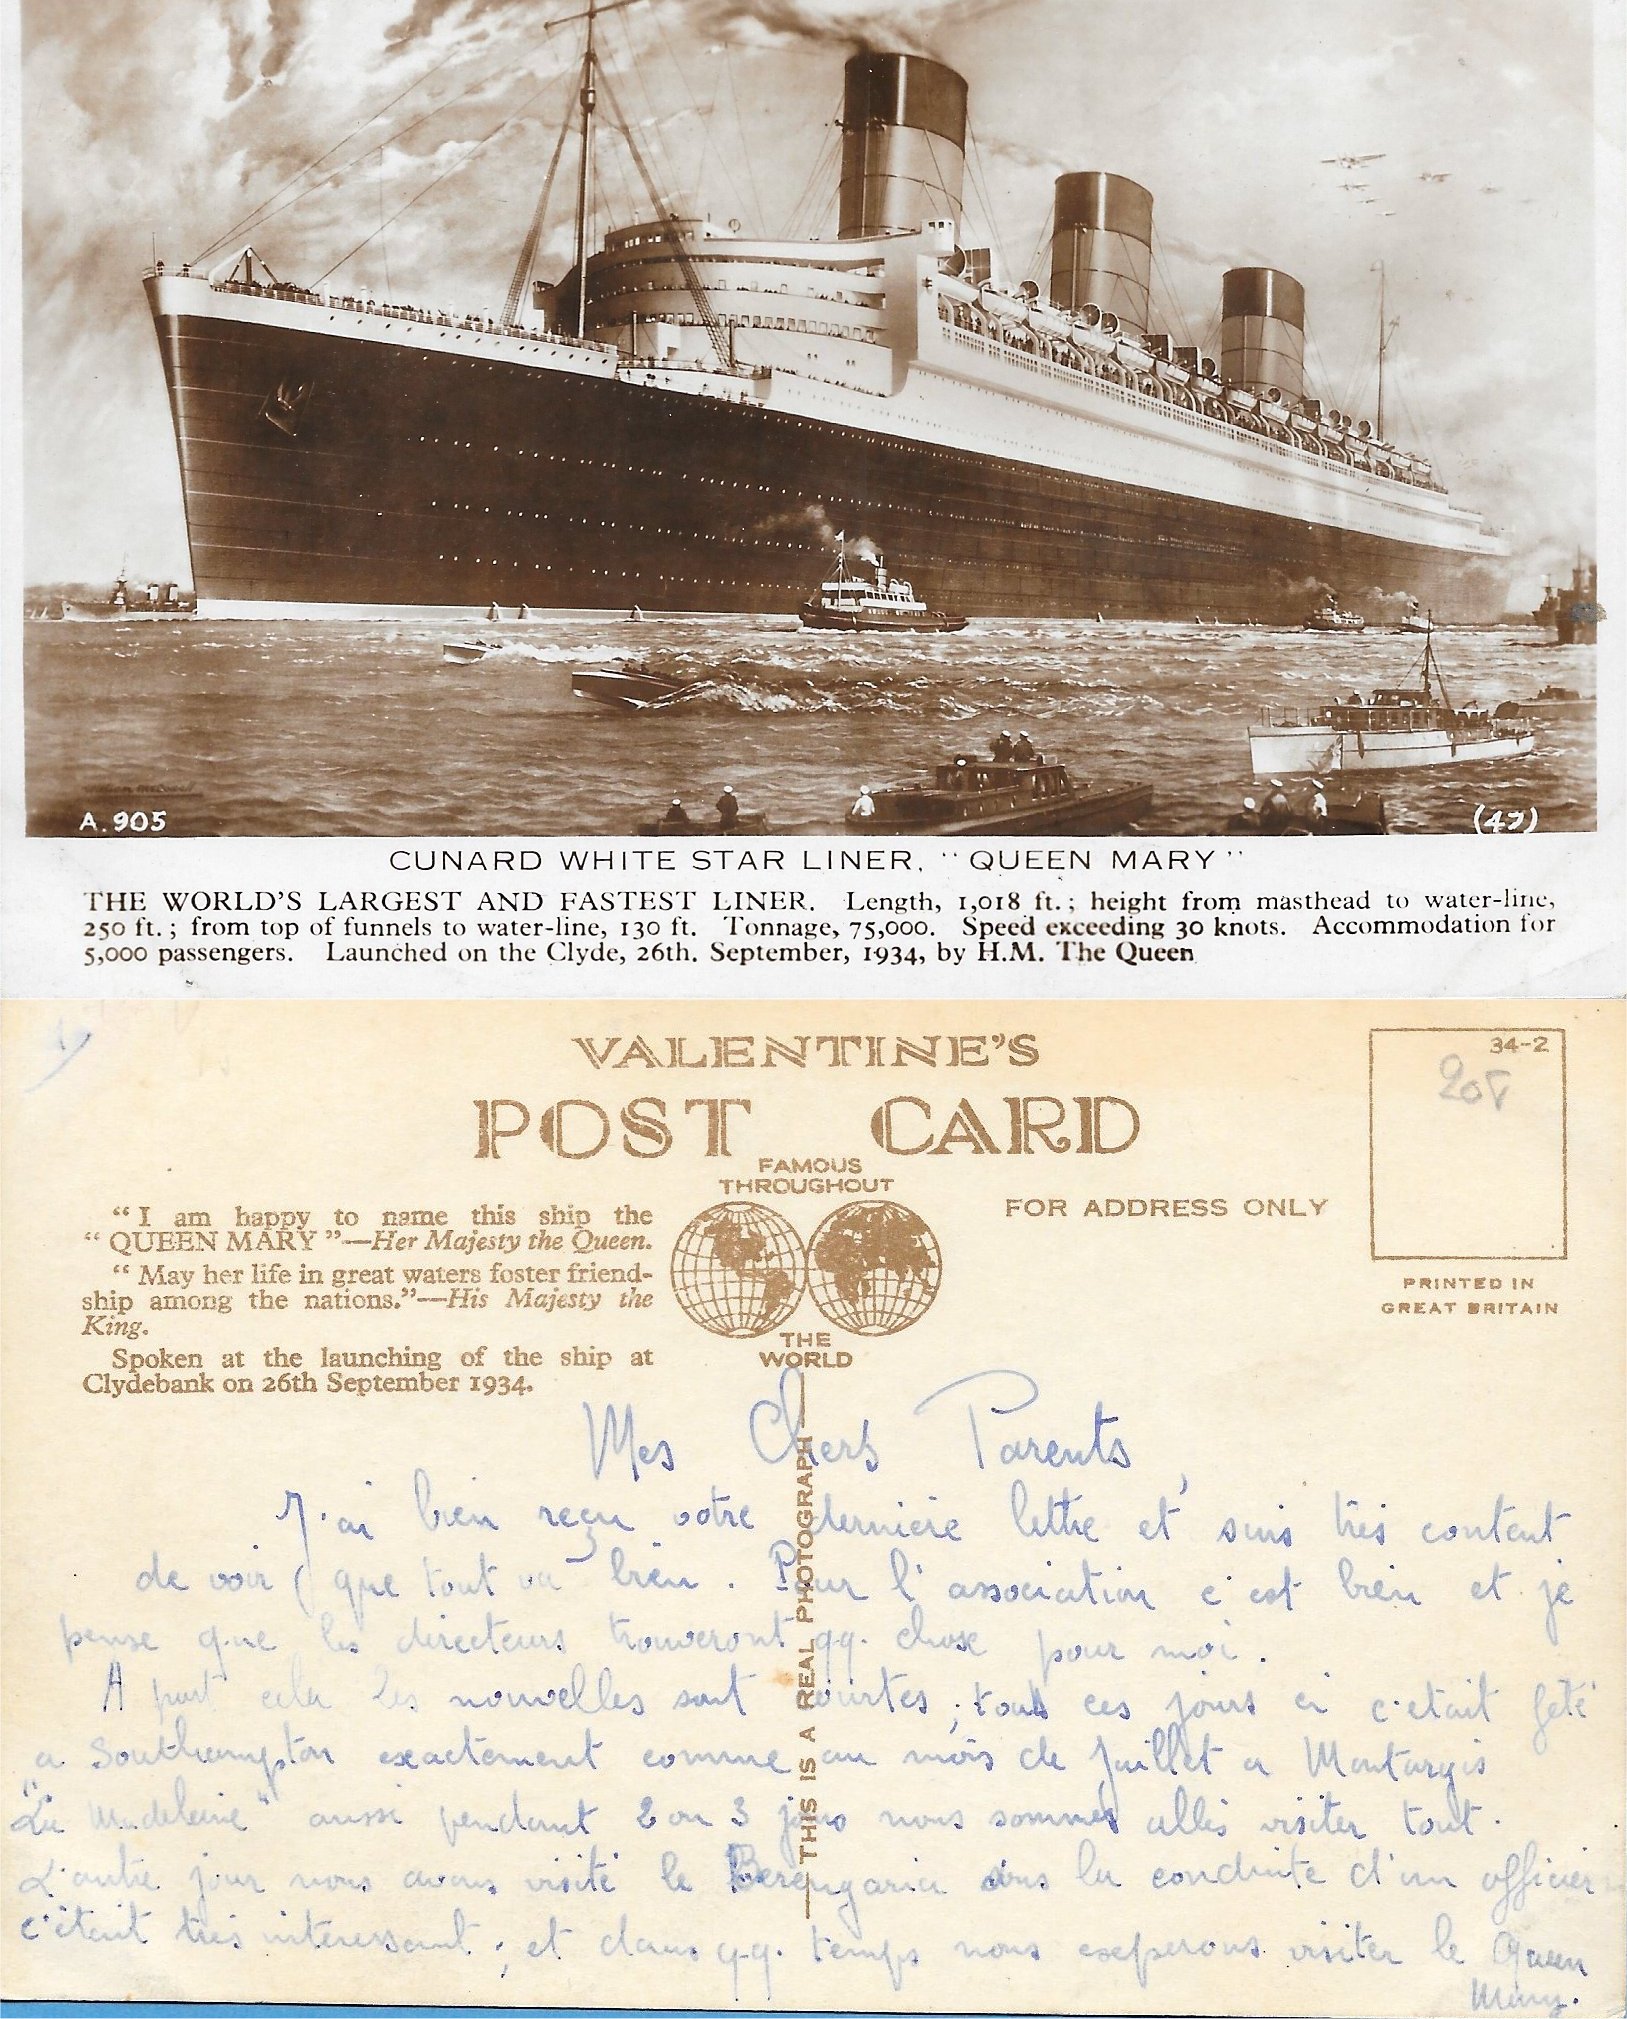 A.905
(47)
CUNARD WHITE STAR LINER, "QUEEN MARY"
THE WORLD'S LARGEST AND FASTEST LINER. Length, 1,018 ft.; height from masthead to water-line,
250 ft.; from top of funnels to water-line, 130 ft. Tonnage, 75,000. Speed exceeding 30 knots. Accommodation for
5,000 passengers. Launched on the Clyde, 26th. September, 1934, by H.M. The Queen
VALENTINE'S
POST CARD
FAMOUS
THROUGHOUT
THE
WORLD
"I am happy to name this ship the
"QUEEN MARY"—Her Majesty the Queen.
"May her life in great waters foster friend-
ship among the nations."—His Majesty the
King.
Spoken at the launching of the ship at
Clydebank on 26th September 1934.
FOR ADDRESS ONLY
34-2
PRINTED IN
GREAT BRITAIN
THIS IS A REAL PHOTOGRAPH
Mes Chers Parents,
J'ai bien reçu votre derniere lettre et suis très content
de voir que tout va bien. Pour l'association c'est bien et je
pense que les directeurs trouveront qq. chose pour moi.
A part cela les nouvelles sont courtes; tous ces jours ci c'etait feté
a Southampton exactement comme au mois de Juillet a Montargis
"La Madeleine" aussi pendant 2 ou 3 jours nous sommes allés visiter tout.
L'autre jour nous avons visité le Berengaria sous la conduite d'un officier
c'était très interessant; et dans qq. temps nous esperons visiter le Queen
Mary.